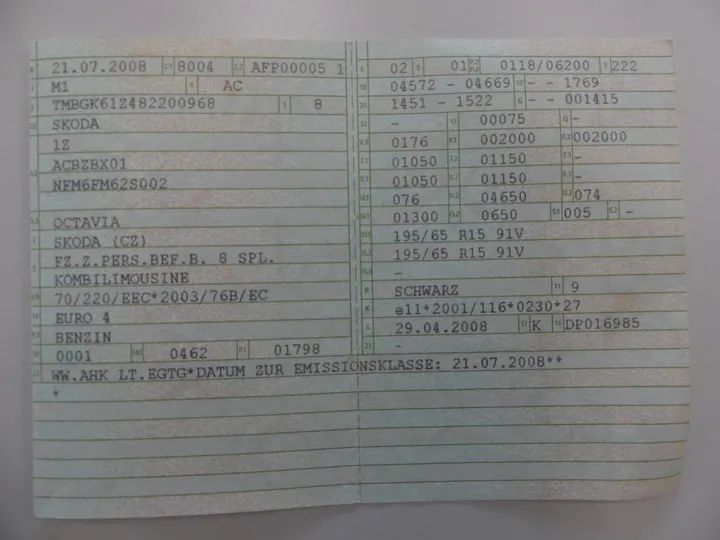 21.07.2008 8004 AFP00005 1
M1 AC
TMBGK61Z482200968 8
SKODA
1Z
ACBZBX01
NFM6FM62S002
OCTAVIA
SKODA (CZ)
FZ.Z.PERS.BEF.B. 8 SPL.
KOMBILIMOUSINE
70/220/EEC*2003/76B/EC
EURO 4
BENZIN
0001 0462 01798
WW.AHK LT.EGTG*DATUM ZUR EMISSIONSKLASSE: 21.07.2008**
*
02 01 0118/06200 222
04572 - 04669 - - 1769
1451 - 1522 - - 001415
- 00075 -
0176 002000 002000
01050 01150 -
01050 01150 -
076 04650 074
01300 0650 005 -
195/65 R15 91V
195/65 R15 91V
-
SCHWARZ 11 9
K e11*2001/116*0230*27
29.04.2008 17 K 16 DP016985
21 -